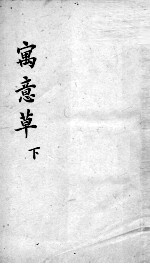 寓意草
下